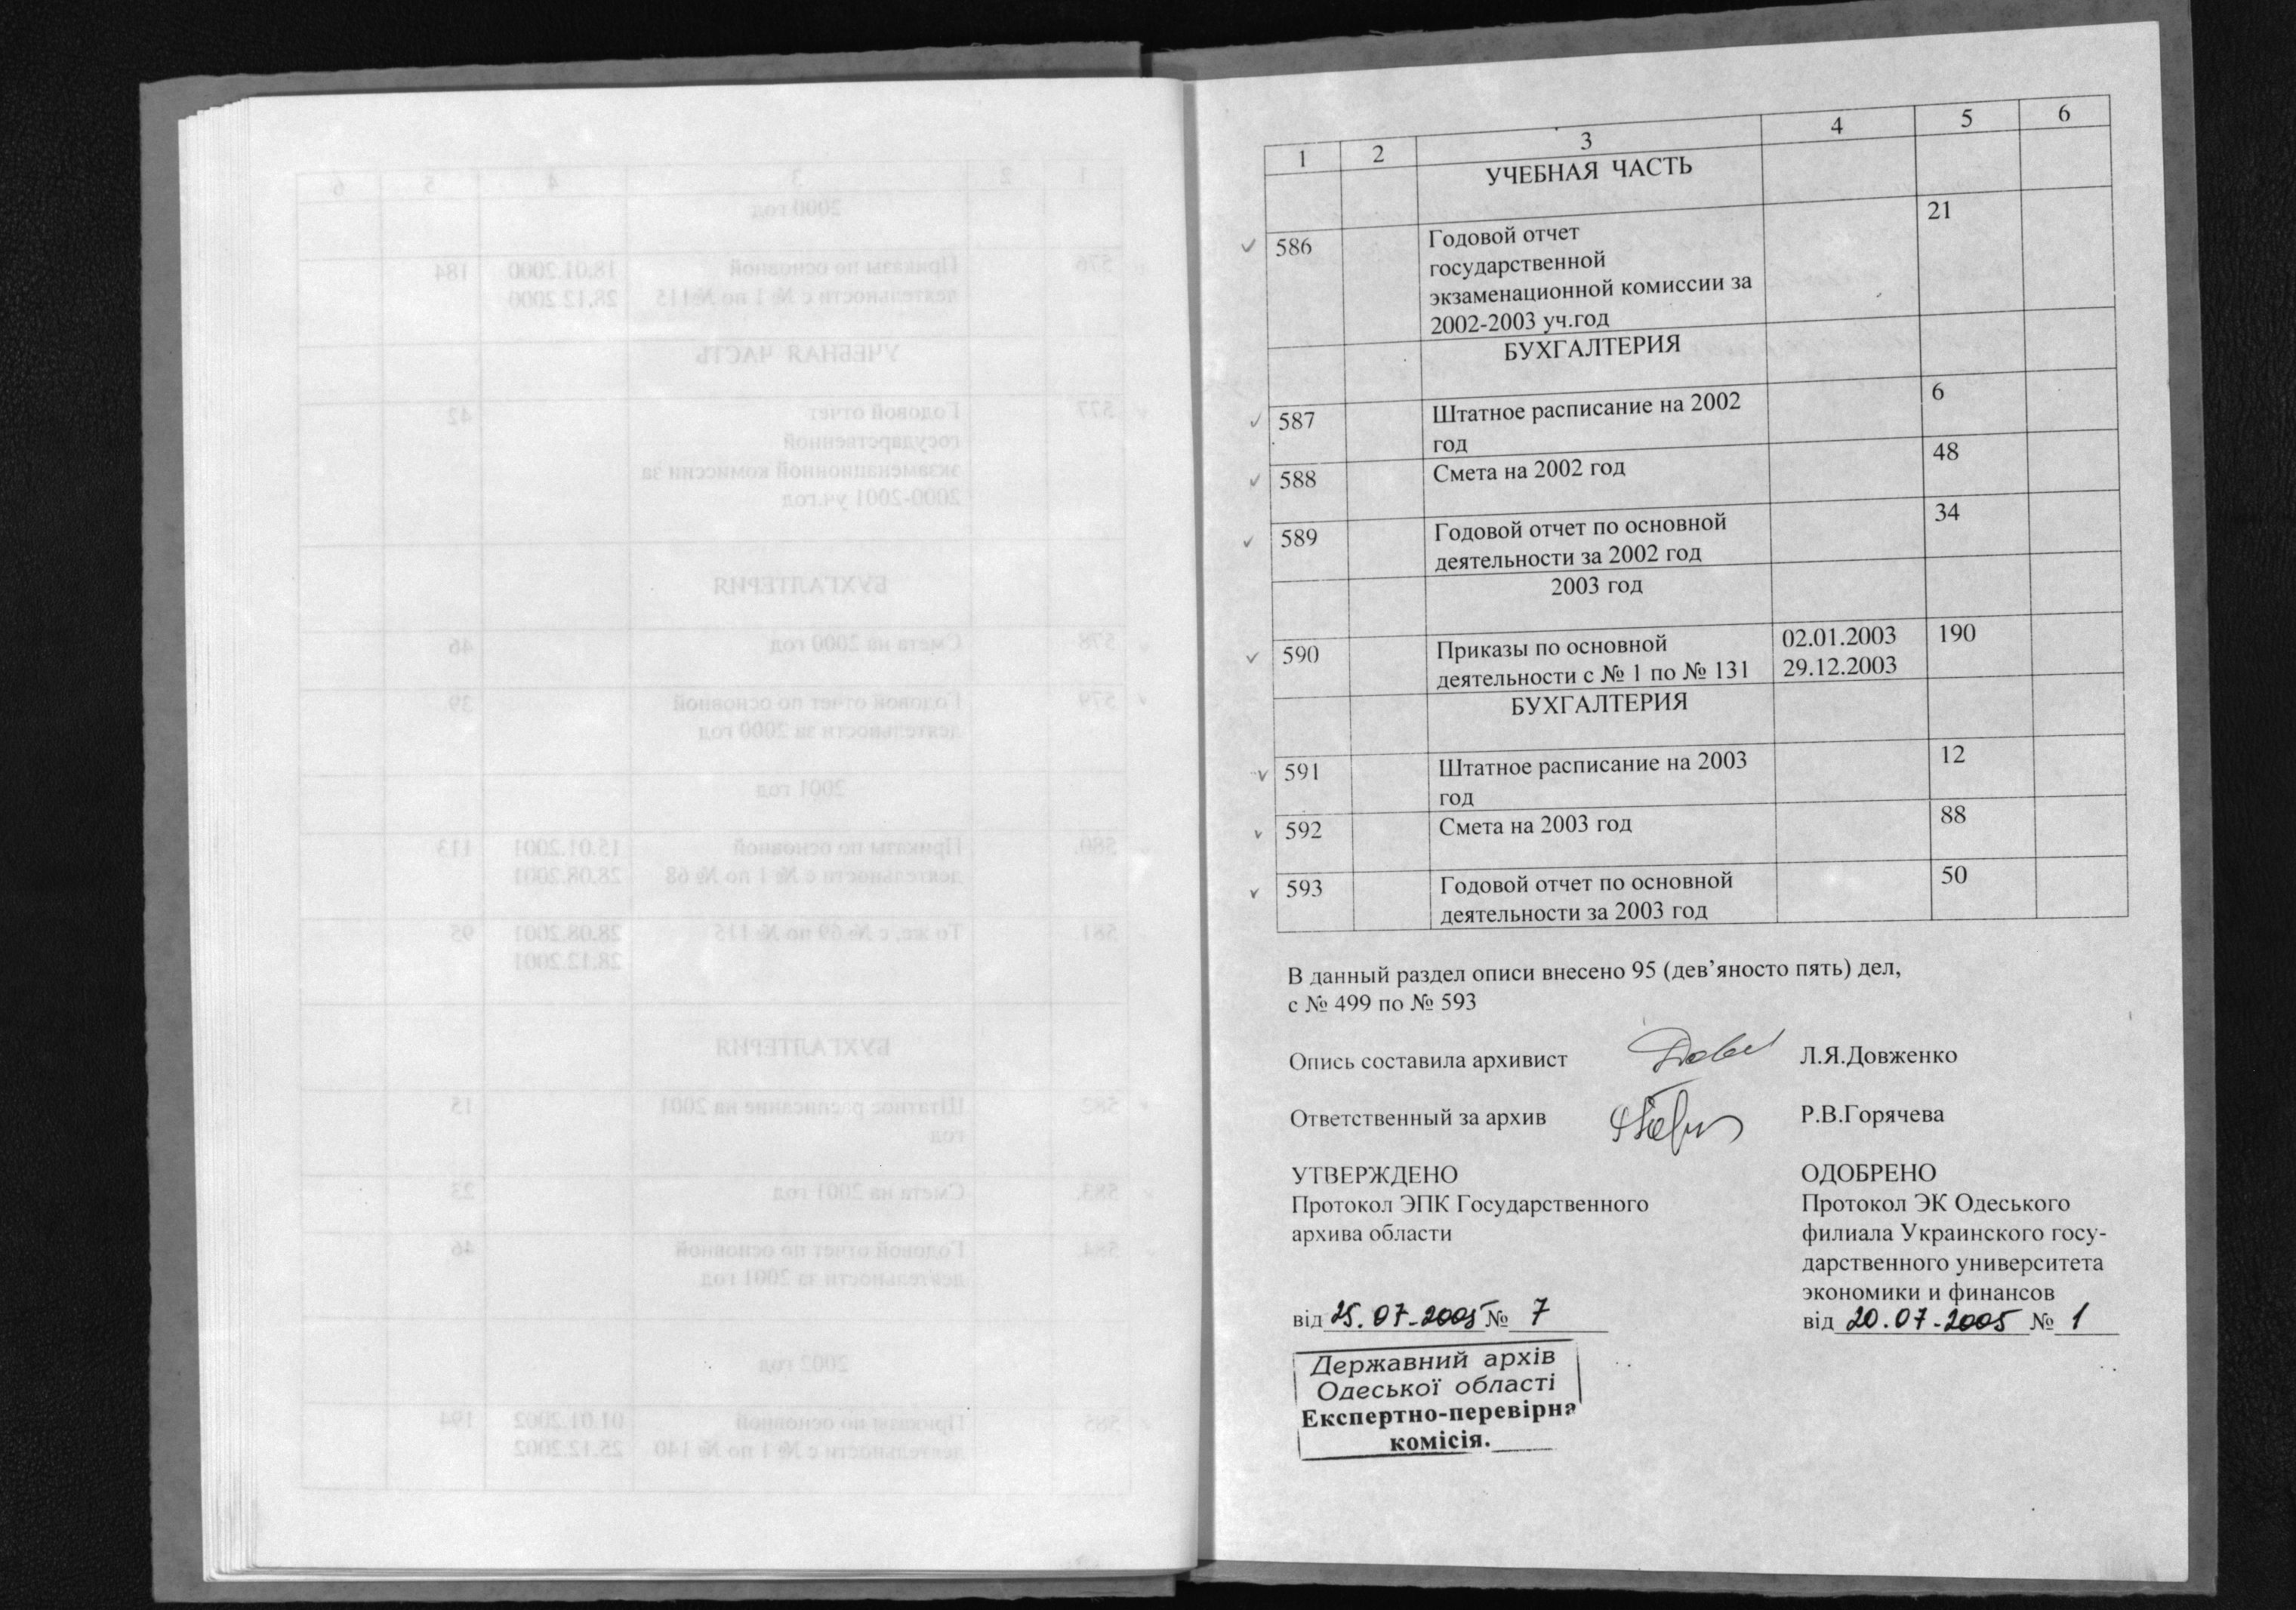 1 2 3 4 5 6
УЧЕБНАЯ ЧАСТЬ
586 Годовой отчет 21
государственной
экзаменационной комиссии за
2002-2003 уч.год
БУХГАЛТЕРИЯ
587 Штатное расписание на 2002 6
год
588 Смета на 2002 год 48
589 Годовой отчет по основной 34
деятельности за 2002 год
2003 год
590 Приказы по основной 02.01.2003 190
деятельности с № 1 по № 131 29.12.2003
БУХГАЛТЕРИЯ
591 Штатное расписание на 2003 12
год
592 Смета на 2003 год 88
593 Годовой отчет по основной 50
деятельности за 2003 год
В данный раздел описи внесено 95 (дев’яносто пять) дел,
с № 499 по № 593
Опись составила архивист Л.Я.Довженко
Ответственный за архив Р.В.Горячева
УТВЕРЖДЕНО
Протокол ЭПК Государственного
архива области
від 25.07-2005 № 7
ОДОБРЕНО
Протокол ЭК Одеського
филиала Украинского госу-
дарственного университета
экономики и финансов
від 20.07-2005 № 1
Державний архів
Одеської області
Експертно-перевірна
комісія.